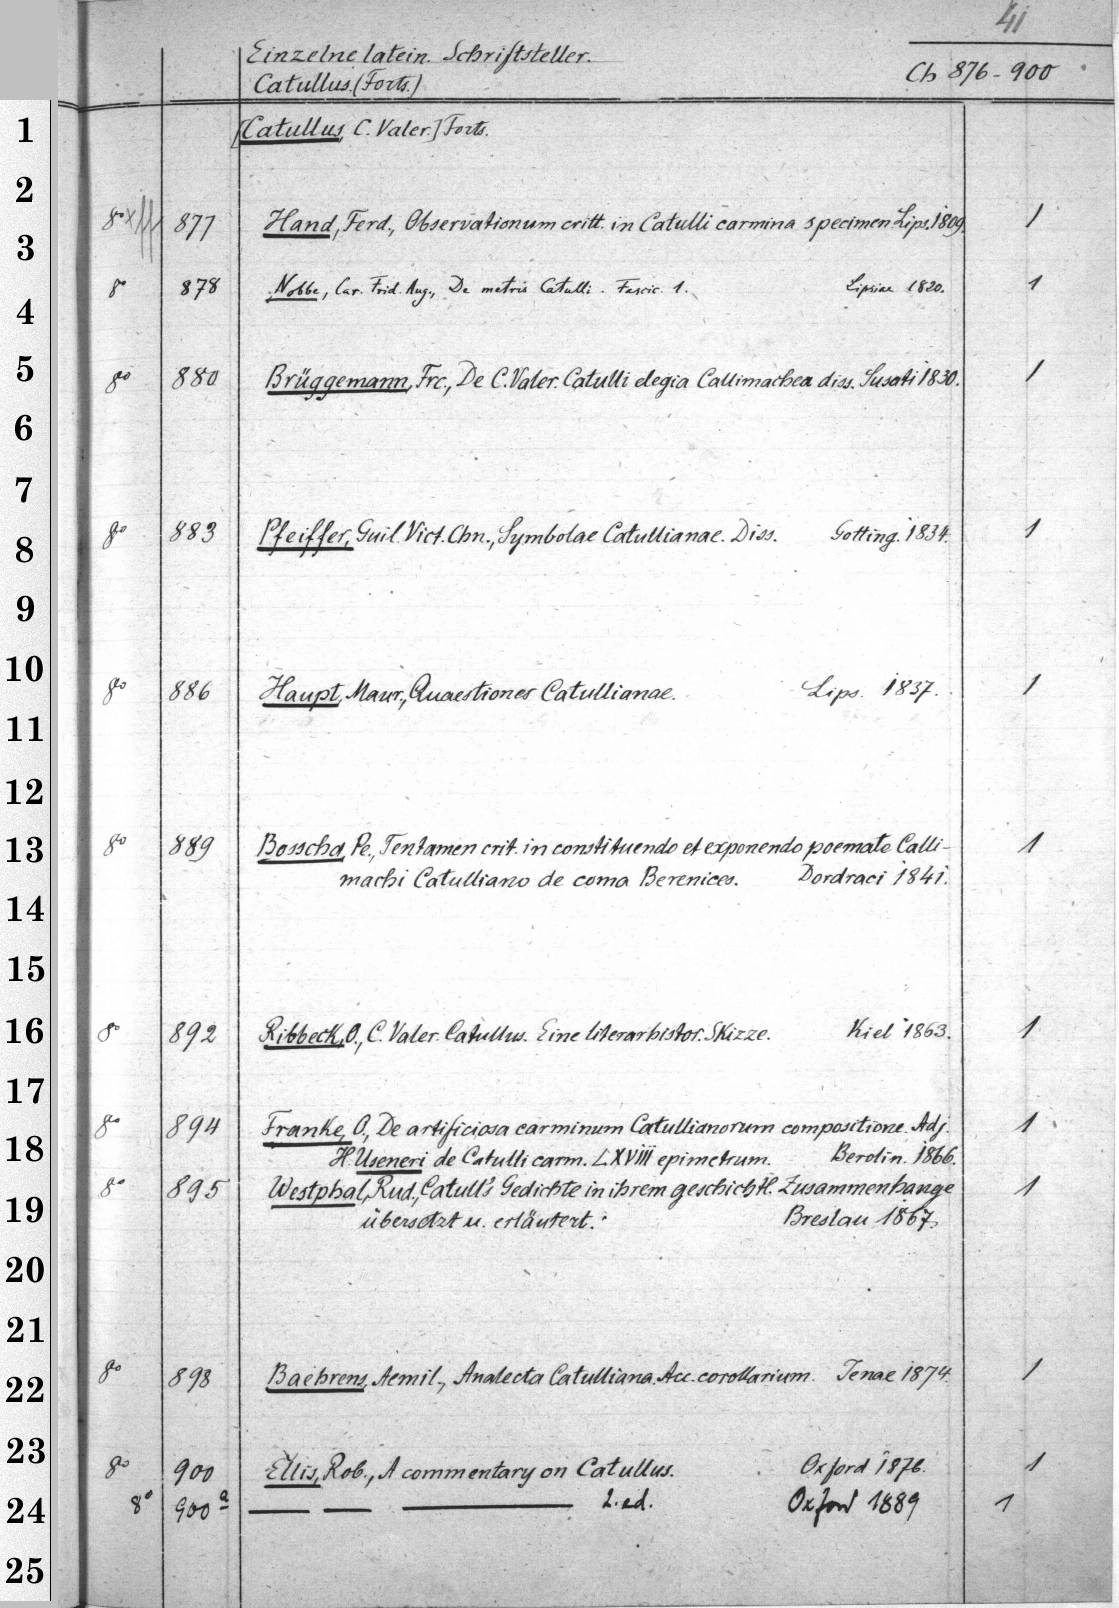 41
Einzelne latein. Schriftsteller.
Catullus. (Forts.)
Cb 876-900
1 [Catullus, C. Valer.] Forts.
2
8° 877 Hand, Ferd., Observationum critt. in Catulli carmina specimen Lips. 1809. 1
3
8° 878 Nobbe, Car. Frid. Aug., De metris Catulli. Fascic. 1. Lipsiae 1820. 1
4
5 8° 880 Brüggemann, Frc., De C. Valer. Catulli elegia Callimachea diss. Susati 1830. 1
6
7
8 8° 883 Pfeiffer, Guil. Vict. Chn., Symbolae Catullianae. Diss. Gotting. 1834. 1
9
10 8° 886 Haupt, Maur., Quaestiones Catullianae. Lips. 1837. 1
11
12
13 8° 889 Bosscha, Pe., Tentamen crit. in constituendo et exponendo poemate Calli- 1
machi Catulliano de coma Berenices. Dordraci 1841.
14
15
16 8° 892 Ribbeck, O., C. Valer. Catullus. Eine literarhistor. Skizze. Kiel 1863. 1
17
8° 894 Franke, O., De artificiosa carminum Catullianorum compositione. Adj. 1
18 H. Useneri de Catulli carm. LXVIII epimetrum. Berolin. 1866.
8° 895 Westphal, Rud., Catull's Gedichte in ihrem geschichtl. Zusammenhange 1
19 übersetzt u. erläutert. Breslau 1867.
20
21
22 8° 898 Baehrens, Aemil., Analecta Catulliana. Acc. corollarium. Jenae 1874. 1
23 8° 900 Ellis, Rob., A commentary on Catullus. Oxford 1876. 1
24 8° 900a — — — 2. ed. Oxford 1889 1
25